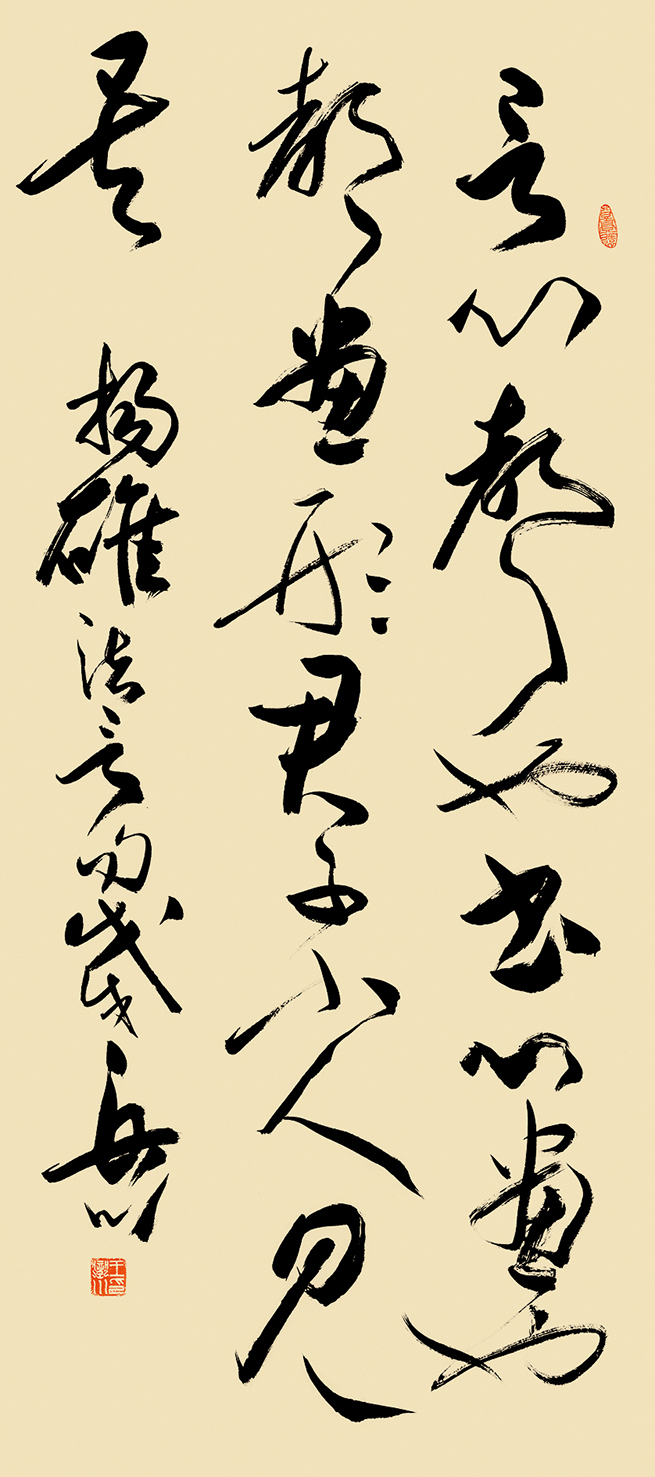 言心聲也書心畫也
聲畫形君子小人見
矣 揚雄法言句 岳川